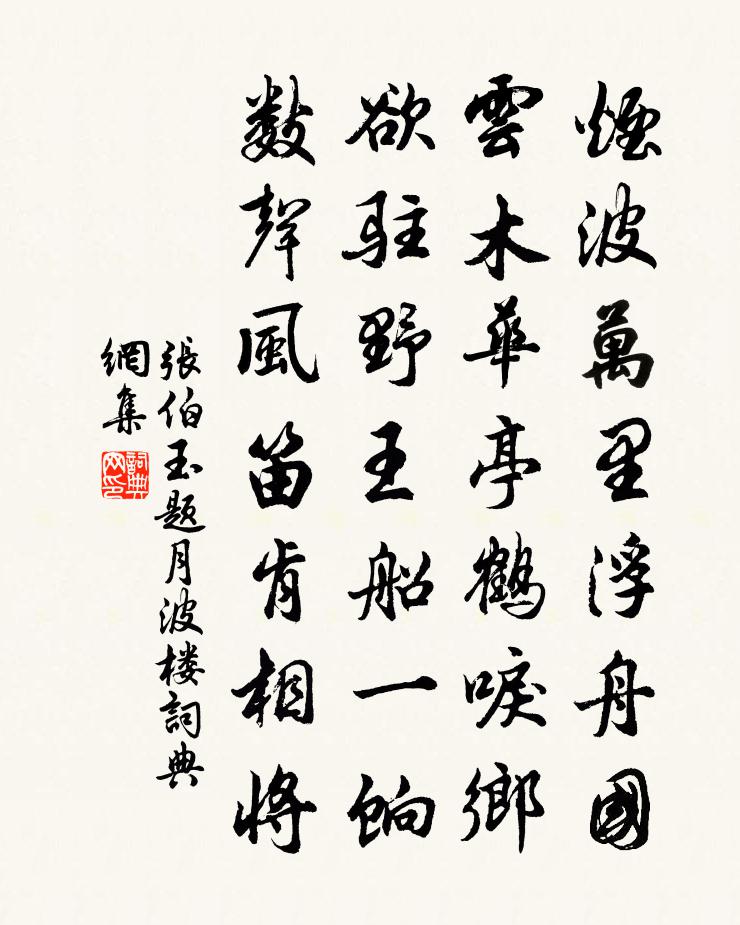 煙波萬里浮舟國
雲木華亭鶴唳鄉
欲駐野王船一餉
數聲風笛肯相將
張伯玉題月波楼詞典
網集
詞典
网印